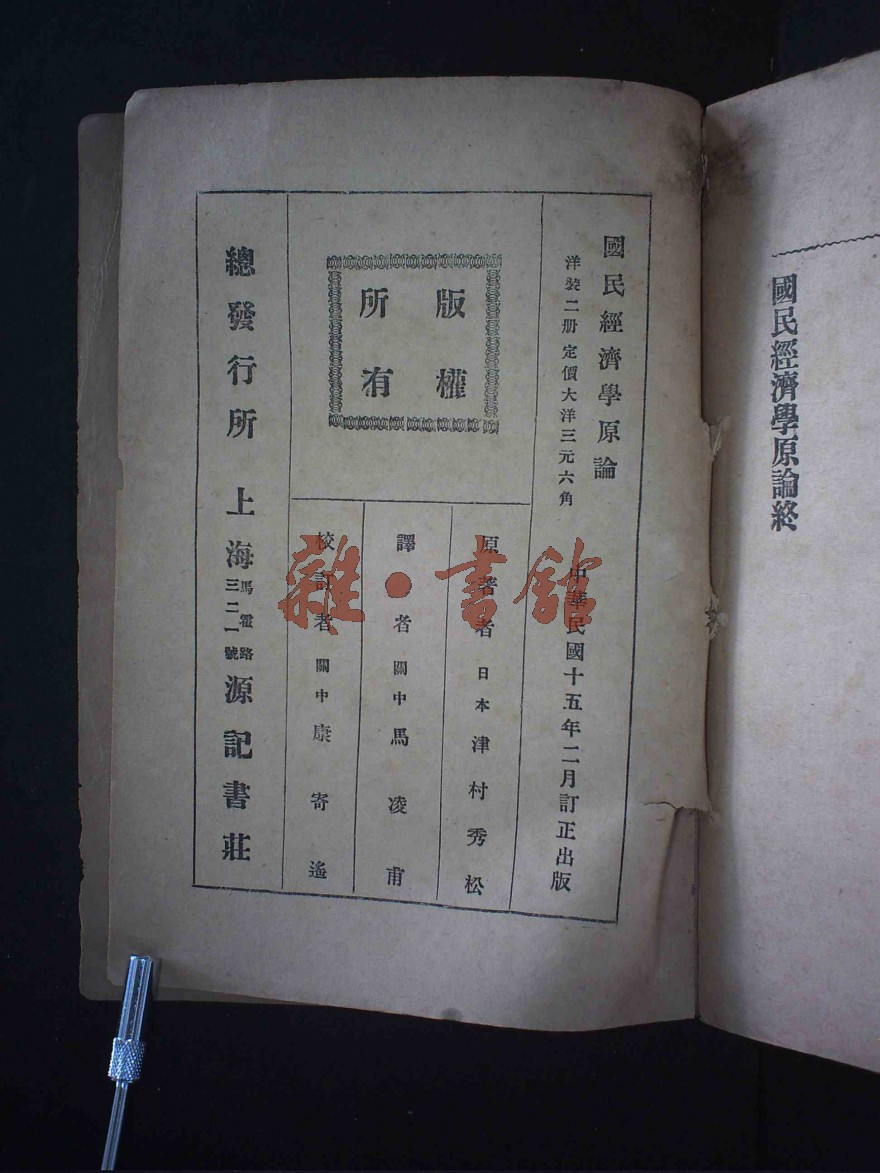 國民經濟學原論終
國民經濟學原論
洋裝二册定價大洋三元六角
中華民國十五年二月訂正出版
版權
所有
原著者日本津村秀松
譯者關中馬凌甫
校訂者關中康寄遙
總發行所上海馬霍路三二一號源記書莊
雜·書館